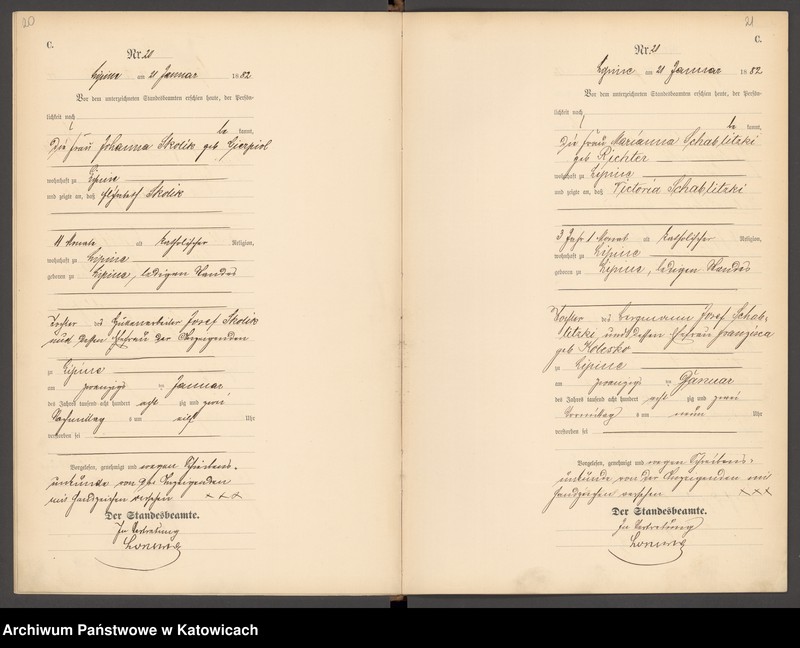 20
C.
Nr. 20
Lipine am 21 Januar 1882
Vor dem unterzeichneten Standesbeamten erschien heute, der Persön-
lichkeit nach
be kannt,
Die Frau Johanna Skolik geb.
wohnhaft zu Lipine
und zeigte an, daß Elisabeth Skolik
11 Monate alt katholischer Religion,
wohnhaft zu Lipine
geboren zu Lipine, ledigen Standes
Tochter des Hüttenarbeiter Josef Skolik
und dessen Ehefrau der Anzeigenden
zu Lipine
am zwanzigsten Januar
des Jahres tausend acht hundert acht zig und zwei
Nachmittag um elf Uhr
verstorben sei
Vorgelesen, genehmigt und wegen Schreibens-
unkunde von der Anzeigenden
mit Handzeichen versehen +++
Der Standesbeamte.
In Vertretung
21
C.
Nr. 21
Lipine am 21 Januar 1882
Vor dem unterzeichneten Standesbeamten erschien heute, der Persön-
lichkeit nach
be kannt,
Die Frau Marianna Schablitzki
geb Richter
wohnhaft zu Lipine
und zeigte an, daß Victoria Schablitzki
3 Jahr 1 Monat alt katholischer Religion,
wohnhaft zu Lipine
geboren zu Lipine, ledigen Standes
Tochter des Bergmann Josef Schab-
litzki und dessen Ehefrau Franzisca
geb Kolesko
zu Lipine
am zwanzigsten Januar
des Jahres tausend acht hundert acht zig und zwei
Vormittag um neun Uhr
verstorben sei
Vorgelesen, genehmigt und wegen Schreibens-
unkunde von der Anzeigenden mit
Handzeichen versehen +++
Der Standesbeamte.
In Vertretung
Archiwum Państwowe w Katowicach